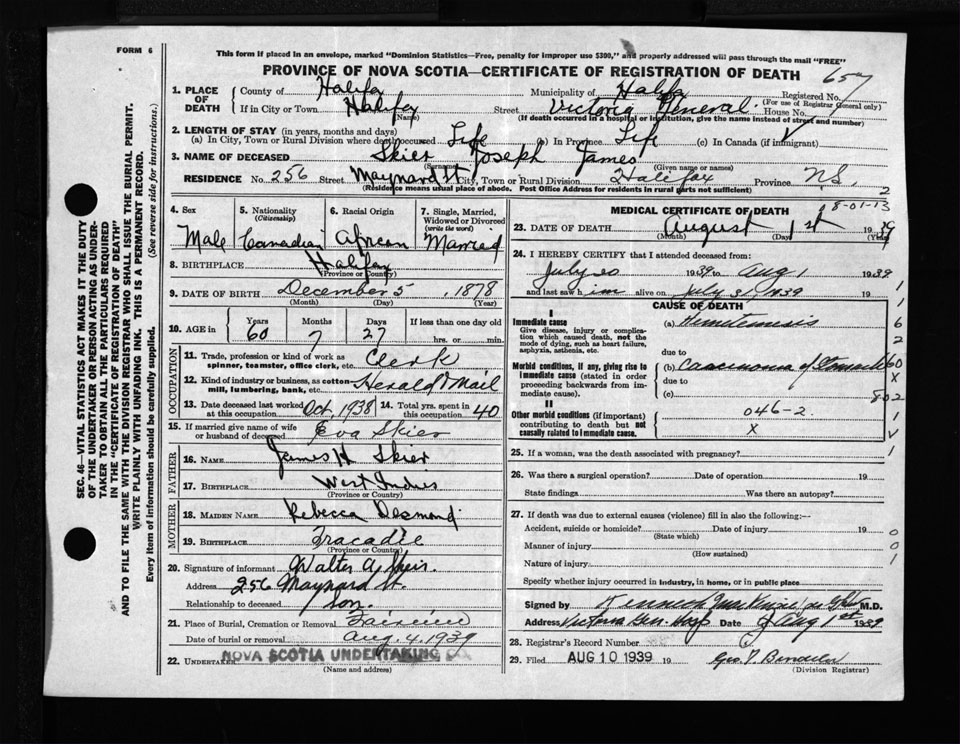 FORM 6
This form if placed in an envelope, marked "Dominion Statistics—Free, penalty for improper use $300," and properly addressed will pass through the mail "FREE"
PROVINCE OF NOVA SCOTIA—CERTIFICATE OF REGISTRATION OF DEATH
657
1. PLACE OF DEATH
County of Halifax
Municipality of Halifax
Registered No.
(For use of Registrar General only)
If in City or Town Halifax
(Name)
Street Victoria General. House No.
(If death occurred in a hospital or institution, give the name instead of street and number)
2. LENGTH OF STAY (in years, months and days)
(a) In City, Town or Rural Division where death occurred Life (b) In Province Life (c) In Canada (if immigrant)
3. NAME OF DECEASED Skier Joseph James
(Surname) (Given name or names)
RESIDENCE No. 256 Street Maynard St City, Town or Rural Division Halifax Province N.S.
(Residence means usual place of abode. Post Office Address for residents in rural parts not sufficient)
2
4. Sex
Male
5. Nationality
(Citizenship)
Canadian
6. Racial Origin
African
7. Single, Married, Widowed or Divorced
(write the word)
Married
8. BIRTHPLACE Halifax
(Province or Country)
9. DATE OF BIRTH December 5, 1878
(Month) (Day) (Year)
10. AGE in
Years Months Days If less than one day old
60 7 27 hrs. or min.
OCCUPATION
11. Trade, profession or kind of work as spinner, teamster, office clerk, etc. Clerk
12. Kind of industry or business, as cotton mill, lumbering, bank, etc. Herald & Mail
13. Date deceased last worked at this occupation Oct, 1938
14. Total yrs. spent in this occupation 40
15. If married give name of wife or husband of deceased Eva Skier
FATHER
16. NAME James H Skier
17. BIRTHPLACE West Indies
(Province or Country)
MOTHER
18. MAIDEN NAME Rebecca Desmond
19. BIRTHPLACE Tracadie
(Province or Country)
20. Signature of informant Walter A
Address 256 Maynard St.
Relationship to deceased Son.
21. Place of Burial, Cremation or Removal
Date of burial or removal Aug. 4. 1939
22. UNDERTAKER NOVA SCOTIA UNDERTAKING
(Name and address)
MEDICAL CERTIFICATE OF DEATH
8-01-13
23. DATE OF DEATH August 1st 1939
(Month) (Day) (Year)
24. I HEREBY CERTIFY that I attended deceased from:
July 20 1939, to Aug 1 1939
and last saw him alive on July 31, 1939
CAUSE OF DEATH
I
Immediate cause
Give disease, injury or complication which caused death, not the mode of dying, such as heart failure, asphyxia, asthenia, etc.
(a) Hemetemesis
due to
Morbid conditions, if any, giving rise to immediate cause (stated in order proceeding backwards from immediate cause).
(b) Carcinoma of Stomach
due to
(c)
802
II
Other morbid conditions (if important) contributing to death but not causally related to immediate cause.
046-2
X
25. If a woman, was the death associated with pregnancy?
26. Was there a surgical operation? Date of operation 19
State findings Was there an autopsy?
27. If death was due to external causes (violence) fill in also the following:—
Accident, suicide or homicide? Date of injury 19
(State which)
Manner of injury
(How sustained)
Nature of injury
Specify whether injury occurred in industry, in home, or in public place
Signed by Kenneth M.D.
Address Victoria Gen. Hosp Date Aug 1st 1939
28. Registrar's Record Number
29. Filed AUG 10 1939 19
(Division Registrar)
SEC. 46—VITAL STATISTICS ACT MAKES IT THE DUTY OF THE UNDERTAKER OR PERSON ACTING AS UNDERTAKER TO OBTAIN ALL THE PARTICULARS REQUIRED IN THE "CERTIFICATE OF REGISTRATION OF DEATH" AND TO FILE THE SAME WITH THE DIVISION REGISTRAR WHO SHALL ISSUE THE BURIAL PERMIT.
WRITE PLAINLY WITH UNFADING INK. THIS IS A PERMANENT RECORD.
Every item of information should be carefully supplied.
(See reverse side for instructions.)